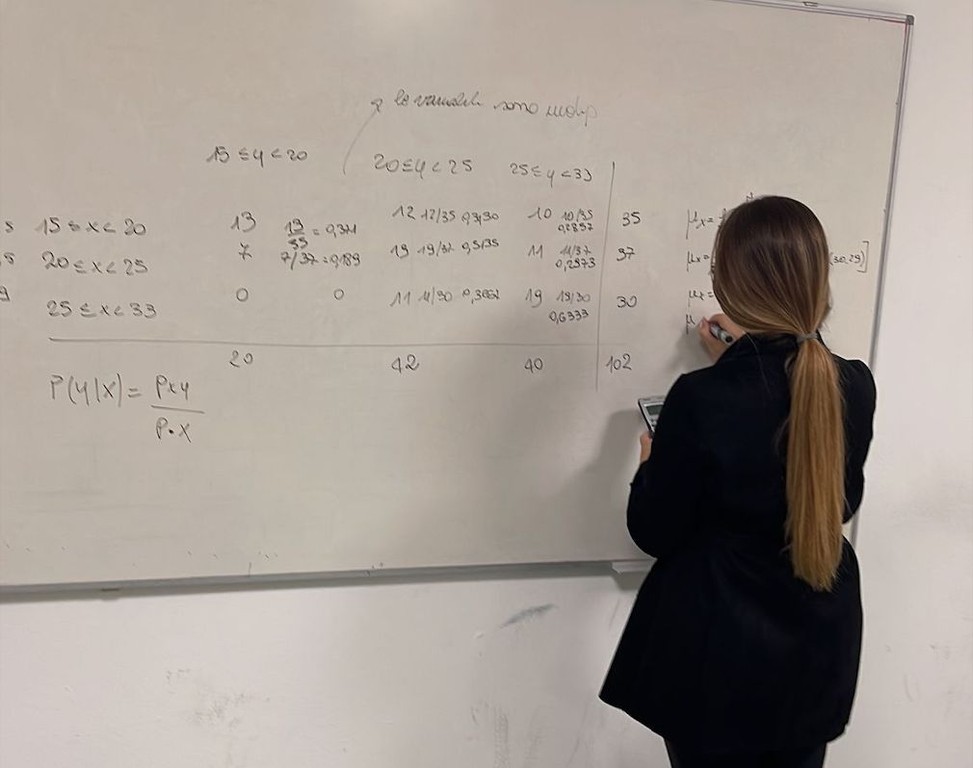 le variabili sono indip
15 ≤ y < 20 20 ≤ y < 25 25 ≤ y < 33
5 15 ≤ x < 20 13 13/35 = 0,371 12 12/35 0,3430 10 10/35 0,2857 35 μx=
,5 20 ≤ x < 25 7 7/37 = 0,189 19 19/37 0,5135 11 11/37 0,2973 37 μx= (30,29)]
9 25 ≤ x < 33 0 0 11 11/30 19 19/30 0,6333 30 μx=
μ
20 42 40 102
P(y|x) = Pxy
P•x